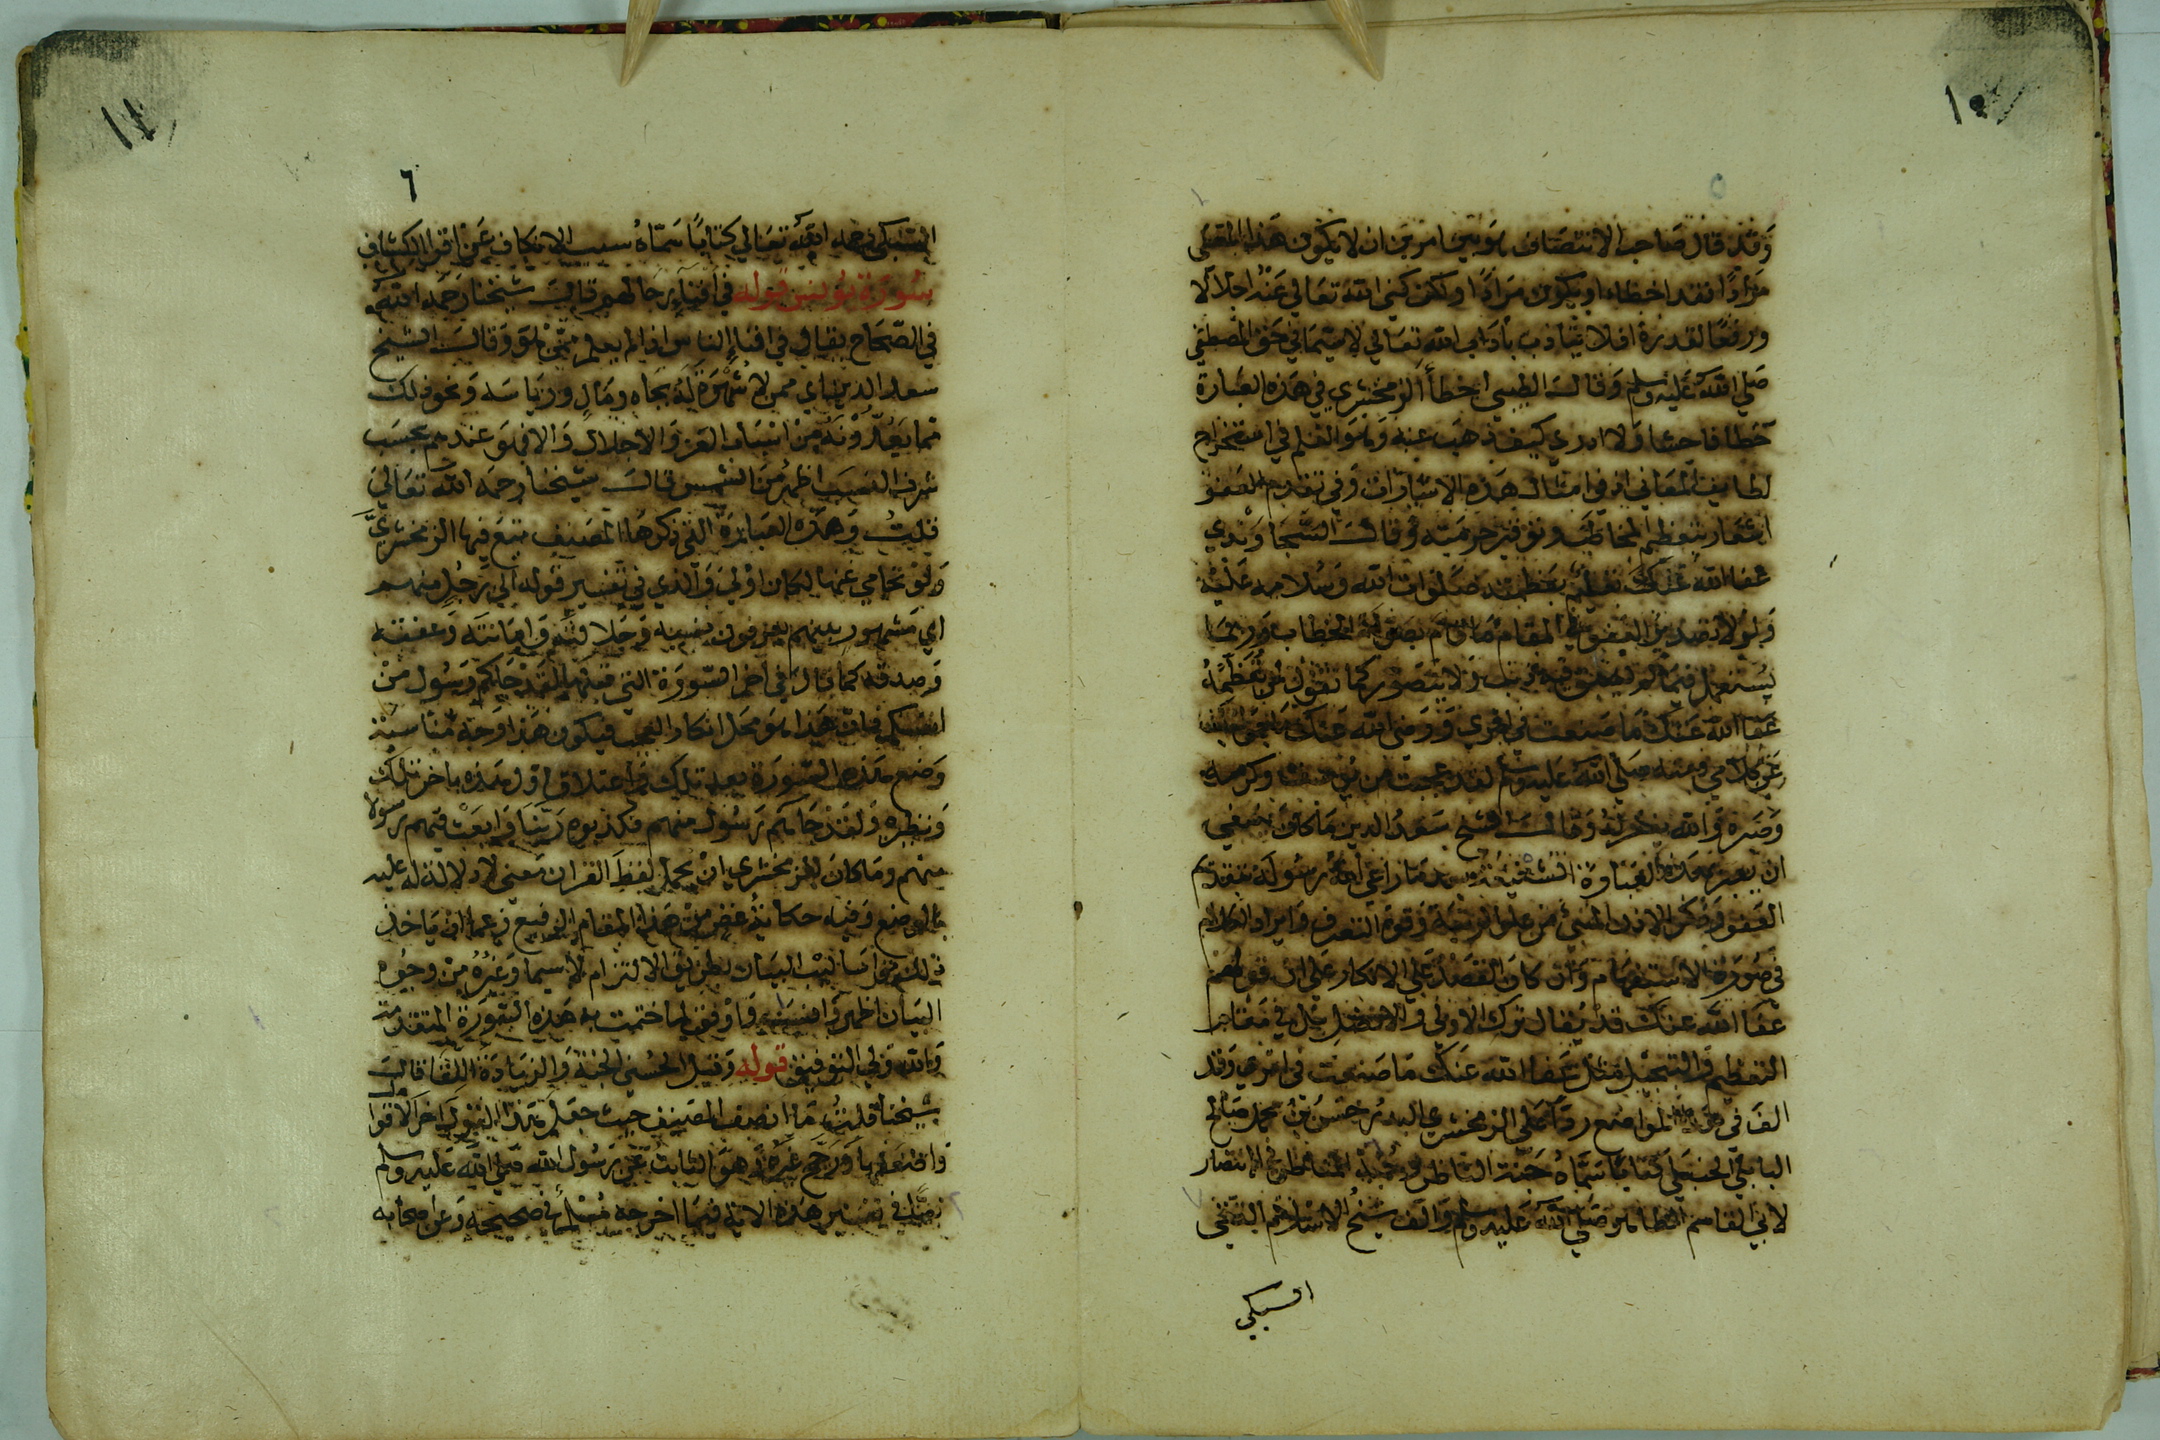 وقد قال صاحب الانتصاف هو بين امرين ان لا يكون هذا المعنى
مرادا فقد اخطا او يكون مرادا ولكن كنى الله تعالى عنه اجلالا
ورفعا لقدره افلا يتادب باداب الله تعالى لا سيما في حق المصطفى
صلى الله عليه وسلم وقال الطيبي اخطأ الزمخشري في هذه العبارة
خطا فاحشا ولا ادري كيف ذهب عنه وهو العلم في استخراج
لطايف المعاني ان في امثال هذه الاشارات وفي تقديم العفو
اشعار بتعظيم المخاطب وتوفير حرمته وقال السجاوندي
عفا الله عنك تعليم بعظمته صلوات الله وسلامه عليه
ولولا تصدير العفو في المقام لما قام بصولة الخطاب وربما
يستعمل فيما لم يسبق فيه ذنب ولا يتصور كما تقول لمن تعظمه
عفا الله عنك ما صنعت في امري ورضي الله عنك ما
عن كلامي ومنه صلى الله عليه وسلم لقد عجبت من يوسف وكرمه
وصبره والله يغفر له وقال الشيخ سعد الدين ما كان ينبغي
ان يعبر بهذه العبارة الشنيعة بعد ما راعى الله رسوله بتقديم
العفو وذكر الاذن المنبئ عن علو المرتبة وقوة التصرف وايراد الكلام
في صورة الاستفهام وان كان القصد على الانكار على ان قولهم
عفا الله عنك قد يقال ترك الاولى والافضل بل في مقام
التعظيم والتبجيل مثل عفا الله عنك ما صنعت في امري وقد
الف في هذه المواضع ردا على الزمخشري البدر حسن بن محمد صالح
النابلسي الحنبلي كتابا سماه جنة الناظر وجنة المناظر في الانتصار
لابي القاسم الطاهر صلى الله عليه وسلم والف شيخ الاسلام التقي
السبكي
١٠
٥
١١
٦
السبكي رحمه الله تعالى كتابا سماه سبب الانكفاف عن اقرا الكشاف
سورة يونس قوله في افناء رجالهم قال شيخنا رحمه الله
في الصحاح يقال في افنا الناس اذا لم يعلم ممن هو وقال الشيخ
سعد الدين اي ممن لا شهرة له بجاه ومال ورياسة ونحو ذلك
مما يعدونه من اسباب العز والاجلال والا فهو عندهم بحسب
شرف النسب اظهر من الشمس قال شيخنا رحمه الله تعالى
قلت وهذه العبارة التي ذكرها المصنف تبع فيها الزمخشري
ولو تحامى عنها لكان اولى والذي في تفسير قوله الى رجل منهم
اي مشهور بينهم يعرفون نسبه وجلالته وامانته وعفته
وصدقه كما قال في اخر السورة التي قبلها لقد جاكم رسول من
انفسكم فان هذا هو محل انكار العجب فيكون هذا وجه مناسبة
وضع هذه السورة بعد تلك واعتلاق اول هذه باخر تلك
ونظيره ولقد جاهم رسول منهم فكذبوه ربنا وابعث فيهم رسولا
منهم وما كان للزمخشري ان يحمل لفظ القران معنى لا دلالة له عليه
بالوضع وفيه حكاية غض من هذا المقام الرفيع زعما ان ماخذ
ذلك من اساليب البيان بطريق الالتزام لا سيما وغيره من وجوه
البيان اظهر وانسب واوفق لما ختمت به هذه السورة المتقدمة
والله ولي التوفيق قوله وقيل الحسنى الجنة والزيادة اللقا قال
شيخنا قلت ما انصف المصنف حيث جعل هذا القول اخر الاقوال
واضعفها ورجح غيره وهو الثابت عن رسول الله صلى الله عليه وسلم
في تفسير هذه الاية فيما اخرجه مسلم في صحيحه وعن اصحابه